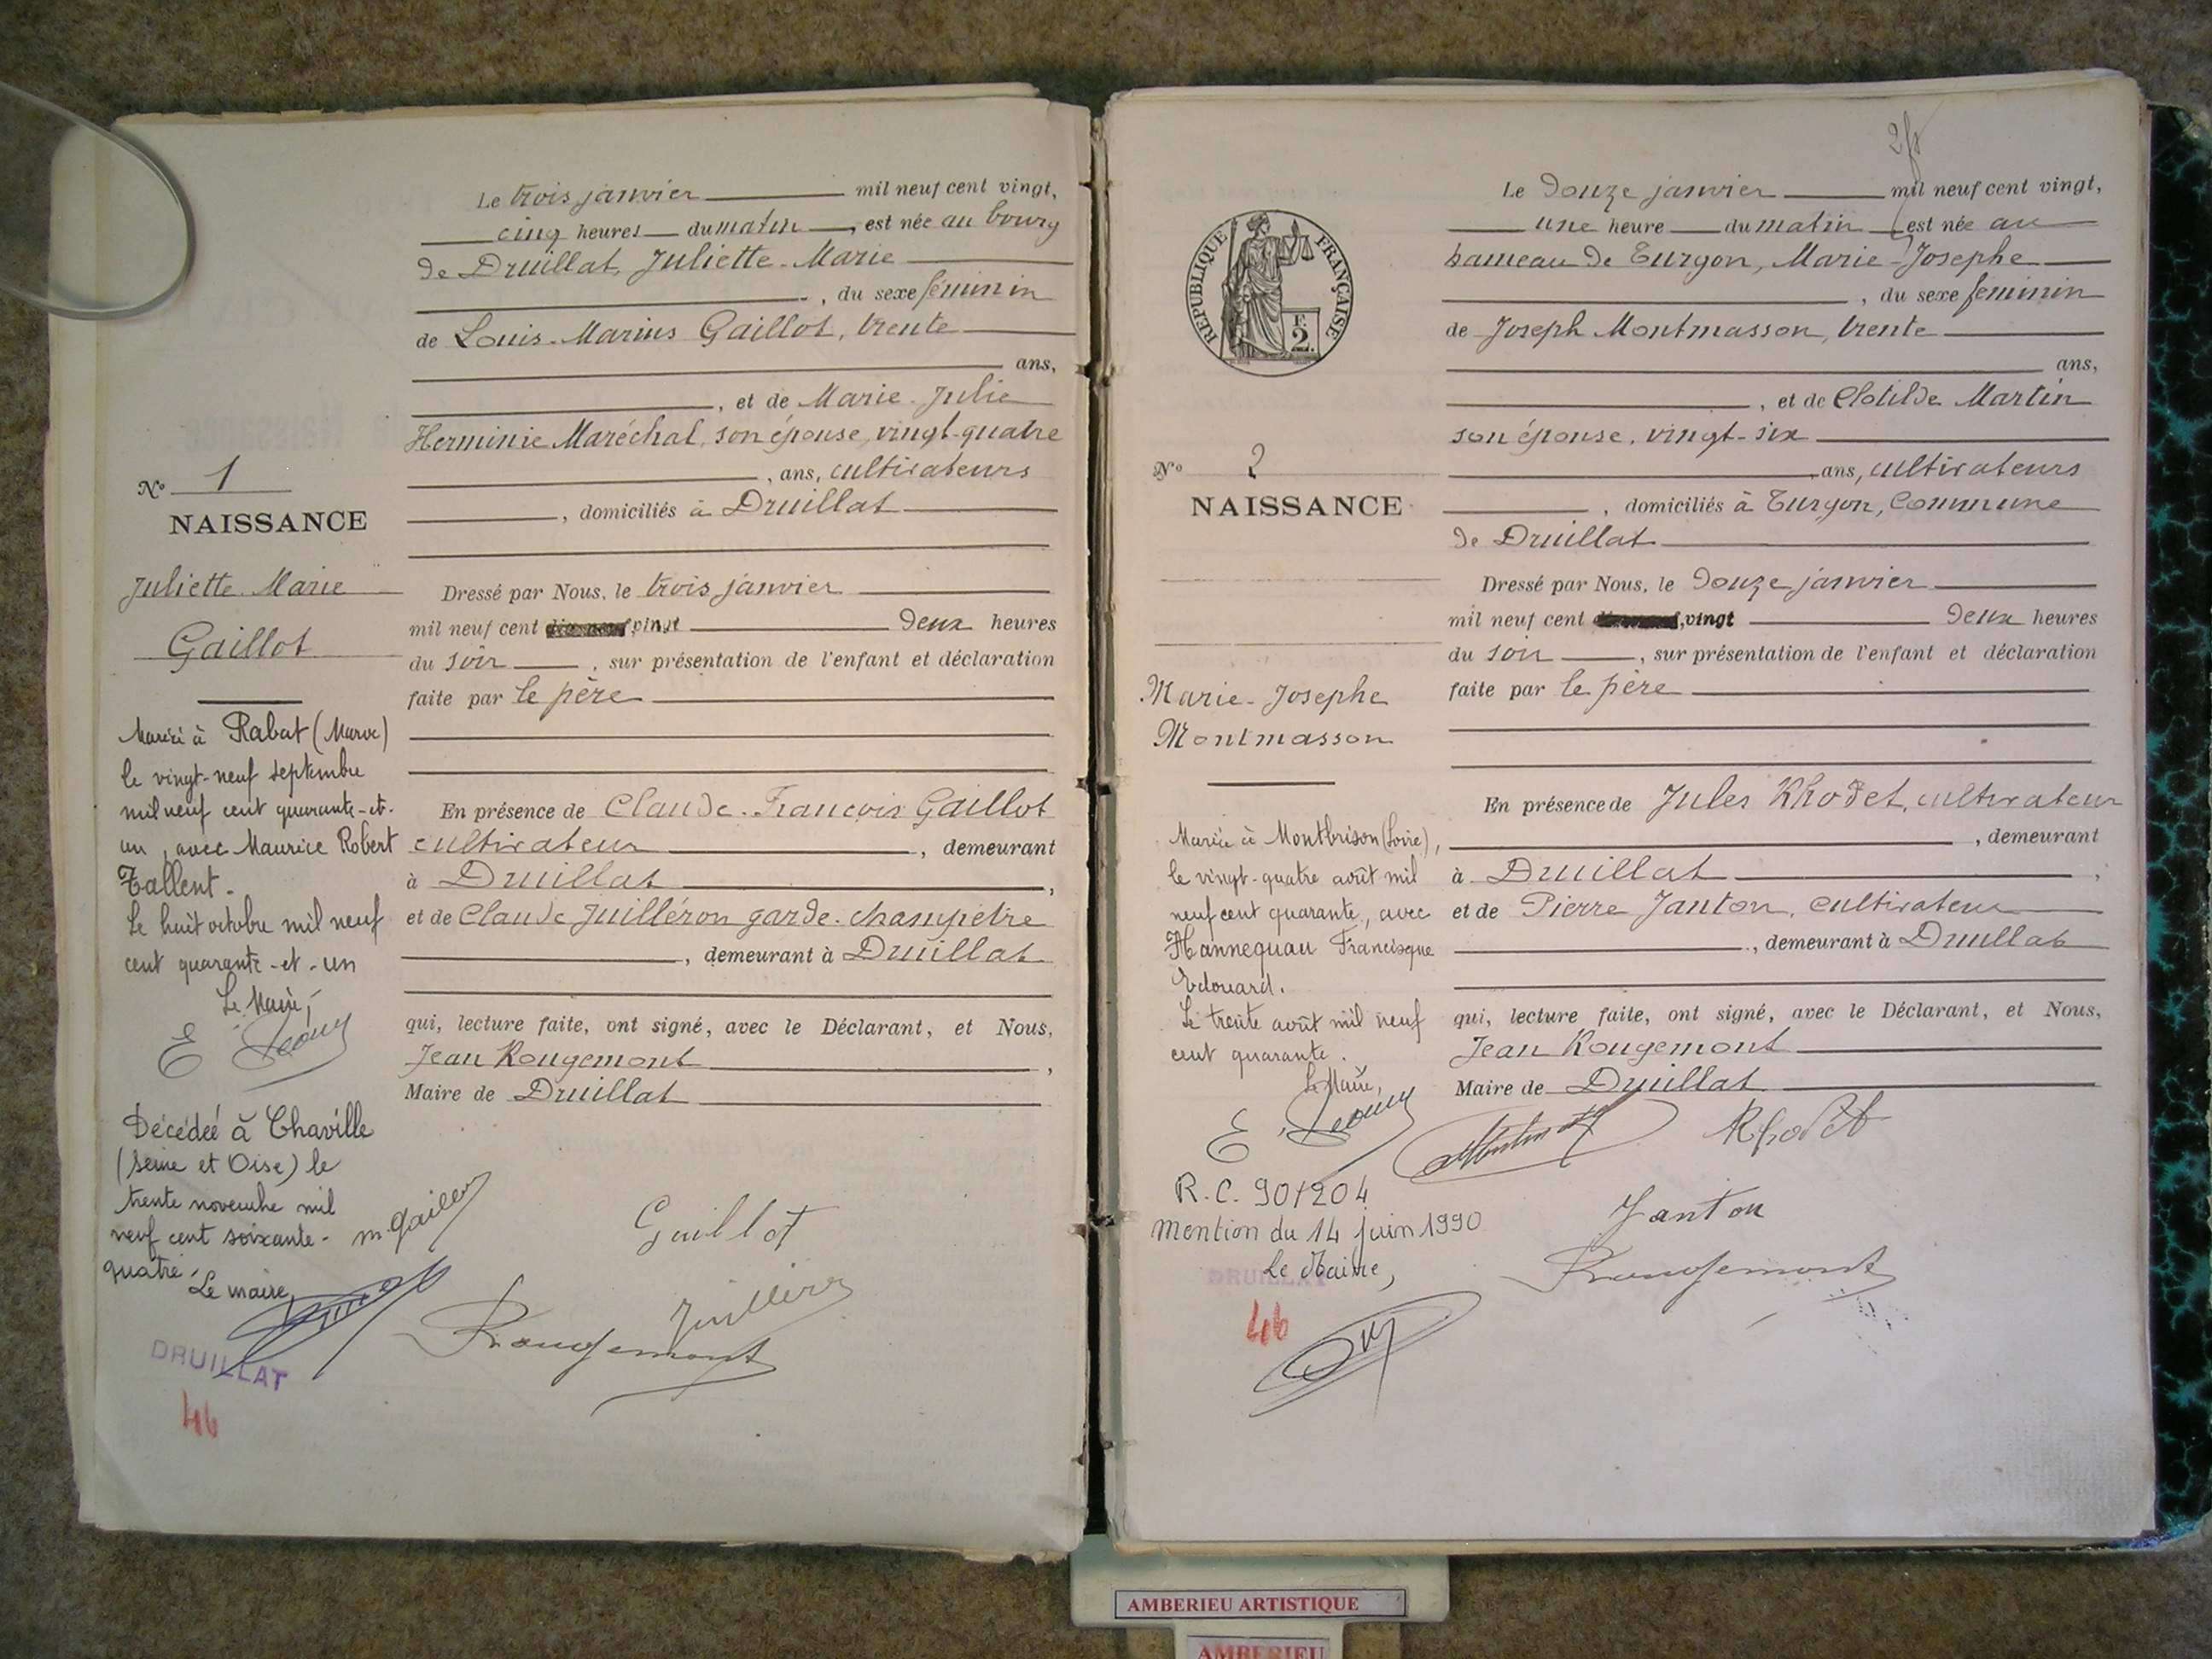 Le trois janvier mil neuf cent vingt,
cinq heures du matin, est née au bourg
de Druillat, Juliette-Marie
, du sexe féminin
de Louis-Marius Gaillot, trente
ans,
, et de Marie-Julie
Herminie Maréchal, son épouse, vingt-quatre
, ans, cultivateurs
, domiciliés à Druillat
N° 1
NAISSANCE
Juliette Marie
Gaillot
Dressé par Nous, le trois janvier
mil neuf cent vingt deux heures
du soir, sur présentation de l'enfant et déclaration
faite par le père
En présence de Claude-François Gaillot
cultivateur, demeurant
à Druillat,
et de Claude Juilléron garde-champêtre
, demeurant à Druillat
qui, lecture faite, ont signé, avec le Déclarant, et Nous,
Jean Rougemont,
Maire de Druillat
Mariée à Rabat (Maroc)
le vingt-neuf septembre
mil neuf cent quarante-et-
un, avec Maurice Robert
Tallent.
Le huit octobre mil neuf
cent quarante-et-un
Le Maire,
Décédée à Chaville
(Seine et Oise) le
trente novembre mil
neuf cent soixante-
quatre.
Le maire,
m. Gaillot
Gaillot
Rougemont
DRUILLAT
46
2f
Le douze janvier mil neuf cent vingt,
une heure du matin est née au
hameau de Turgon, Marie-Josephe
, du sexe féminin
de Joseph Montmasson, trente
ans,
, et de Clotilde Martin
son épouse, vingt-six
ans, cultivateurs
, domiciliés à Turgon, Commune
de Druillat
RÉPUBLIQUE FRANÇAISE
F.
2.
N° 2
NAISSANCE
Marie-Josephe
Montmasson
Dressé par Nous, le douze janvier
mil neuf cent vingt deux heures
du soir, sur présentation de l'enfant et déclaration
faite par le père
En présence de Jules Rhodet, cultivateur
, demeurant
à Druillat,
et de Pierre Janton, cultivateur
, demeurant à Druillat
qui, lecture faite, ont signé, avec le Déclarant, et Nous,
Jean Rougemont
Maire de Druillat
Mariée à Montbrison (Loire),
le vingt-quatre août mil
neuf cent quarante, avec
Hannequau Francisque
Edouard.
Le trente août mil neuf
cent quarante.
Le Maire,
R.C. 90/204
Mention du 14 juin 1990
Le Maire,
DRUILLAT
46
Rhodet
Janton
Rougemont
AMBERIEU ARTISTIQUE
AMBERIEU